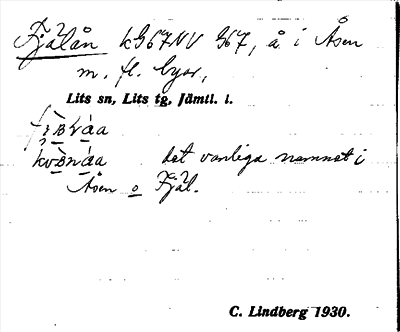 Fjälån kG67NV G67, å i Åsen
m. fl. byar,
Lits sn, Lits tg, Jämtl. l.
det vanliga namnet i
Åsen o Fjäl.
C. Lindberg 1930.